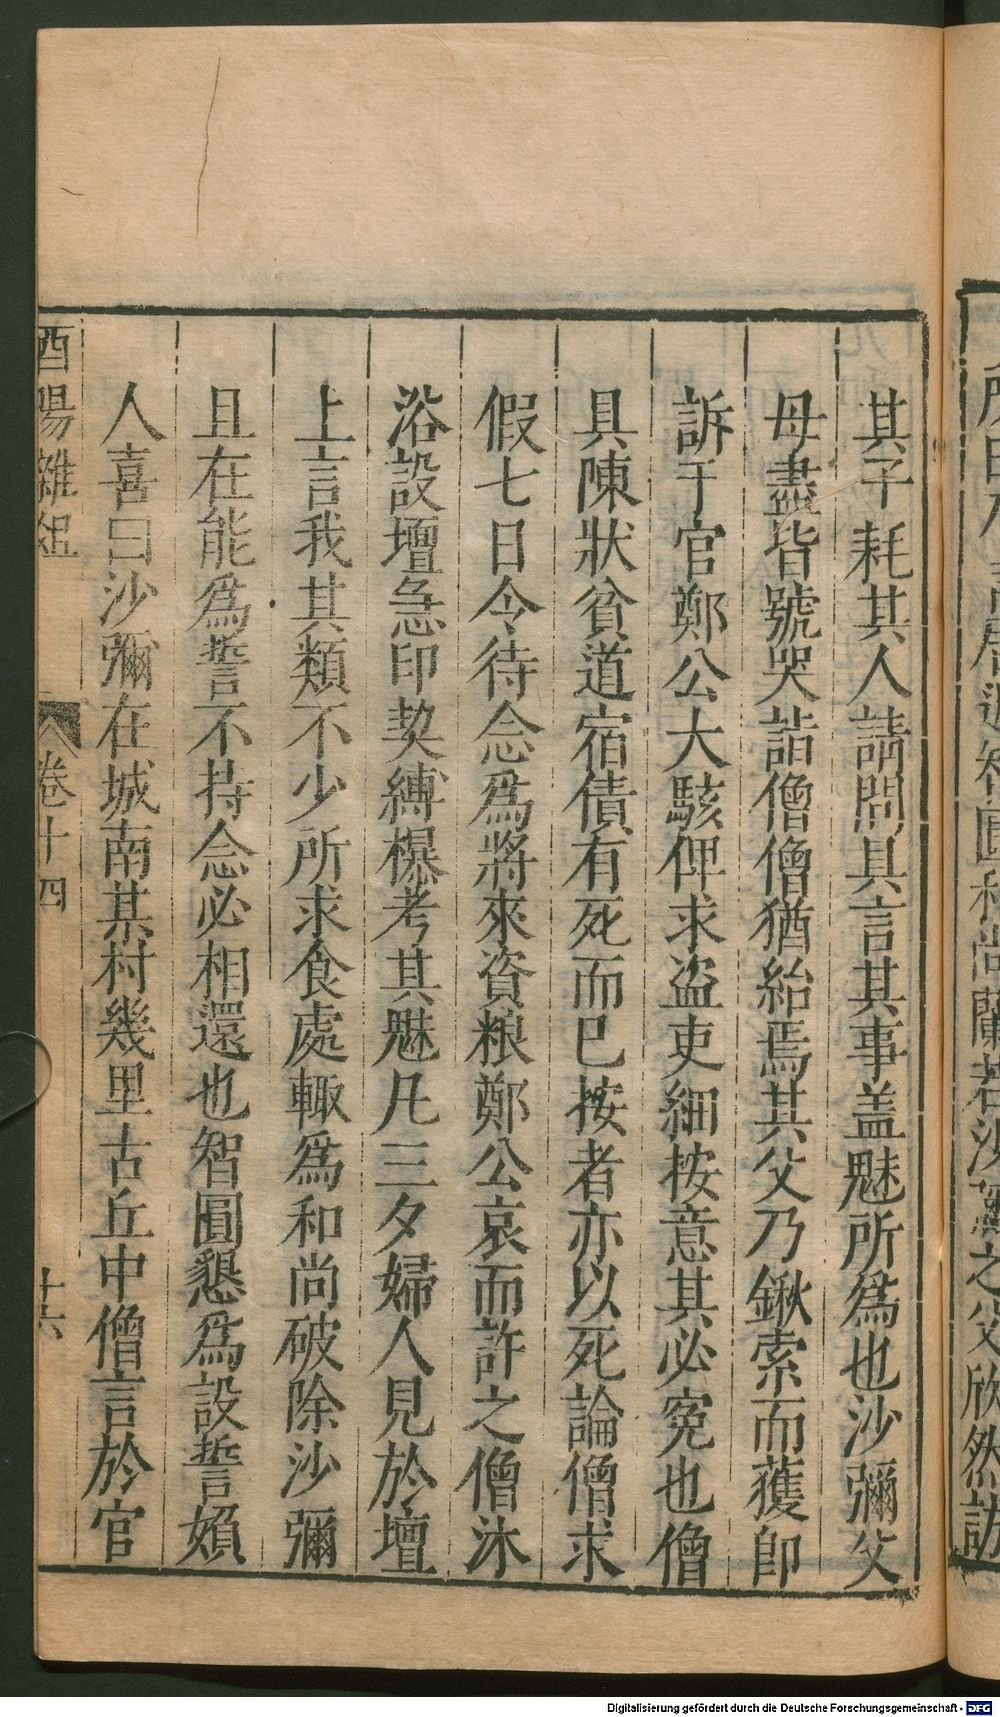 其子耗其人請問具言其事盖魅所爲也沙彌父
母盡皆號哭詣僧僧猶紿焉其父乃鍬索而獲即
訴于官鄭公大駭俾求盜吏細按意其必寃也僧
具陳狀貧道宿債有死而已按者亦以死論僧求
假七日令待念爲將來資粮鄭公哀而許之僧沐
浴設壇急印契縛㯱考其魅凡三夕婦人見於壇
上言我其類不少所求食處輙爲和尚破除沙彌
且在能爲誓不持念必相還也智圓懇爲設誓媍
人喜曰沙彌在城南某村幾里古丘中僧言於官
酉陽雜俎 卷十四 十六
智圓和尚蘭若沙彌之父欣然訪
Digitalisierung gefördert durch die Deutsche Forschungsgemeinschaft - DFG